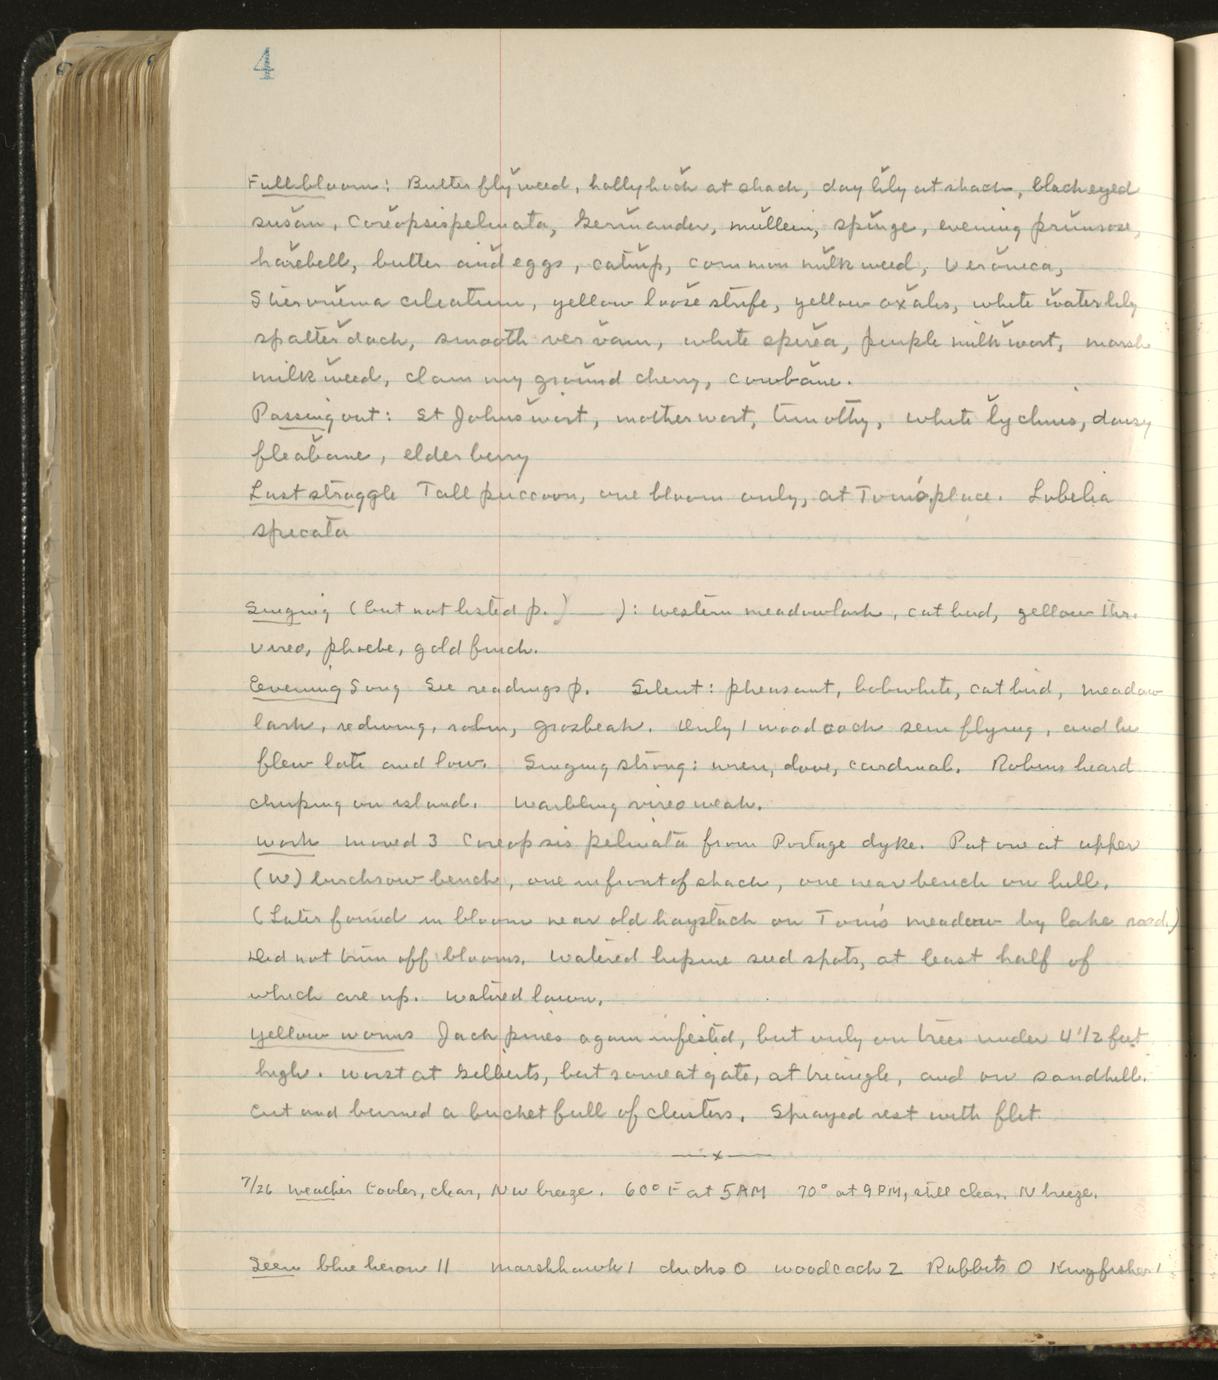 4
Full bloom: Butterflyweed, hollyhock at shack, day lily at shack, blackeyed
susan, Coreopsis pelmata, Germander, mullein, spurge, evening primrose,
harebell, butter and eggs, catnip, common milkweed, Veronica,
Stieronema ciliatum, yellow loosestrife, yellow oxalis, white waterlily
spatterdock, smooth vervain, white spirea, purple milkwort, marsh
milkweed, clammy ground cherry, cowbane.
Passing out: St Johnswort, motherwort, timothy, white lychnis, daisy
fleabane, elderberry
Last straggle Tall puccoon, one bloom only, at Tom's place. Lobelia
spicata
Singing (but not listed p. ) — ): western meadowlark, catbird, yellow thr.
vireo, phoebe, goldfinch.
Evening Song See readings p. Silent: pheasant, bobwhite, catbird, meadow
lark, redwing, robin, grosbeak. Only 1 woodcock seen flying, and he
flew late and low. Singing strong: wren, dove, cardinal. Robins heard
chirping on island. Warbling vireo weak.
Work Moved 3 Coreopsis pelmata from Portage dyke. Put one at upper
(W) birchrow bench, one in front of shack, one near bench on hill.
(Later found in bloom near old haystack on Tom's meadow by lake road.)
Did not trim off blooms. Watered lupine seed spots, at least half of
which are up. Watered lawn.
Yellow worms Jack pines again infested, but only on trees under 4 1/2 feet
high. Worst at Gilberts, but some at gate, at triangle, and on sandhill.
Cut and burned a bucket full of clusters. Sprayed rest with flit.
—x—
7/26 Weather Cooler, clear, NW breeze. 60° F at 5 AM 70° at 9 PM, still clear, N breeze.
Seen blue heron 11 marshhawk 1 ducks 0 woodcock 2 Rabbits 0 Kingfisher 1